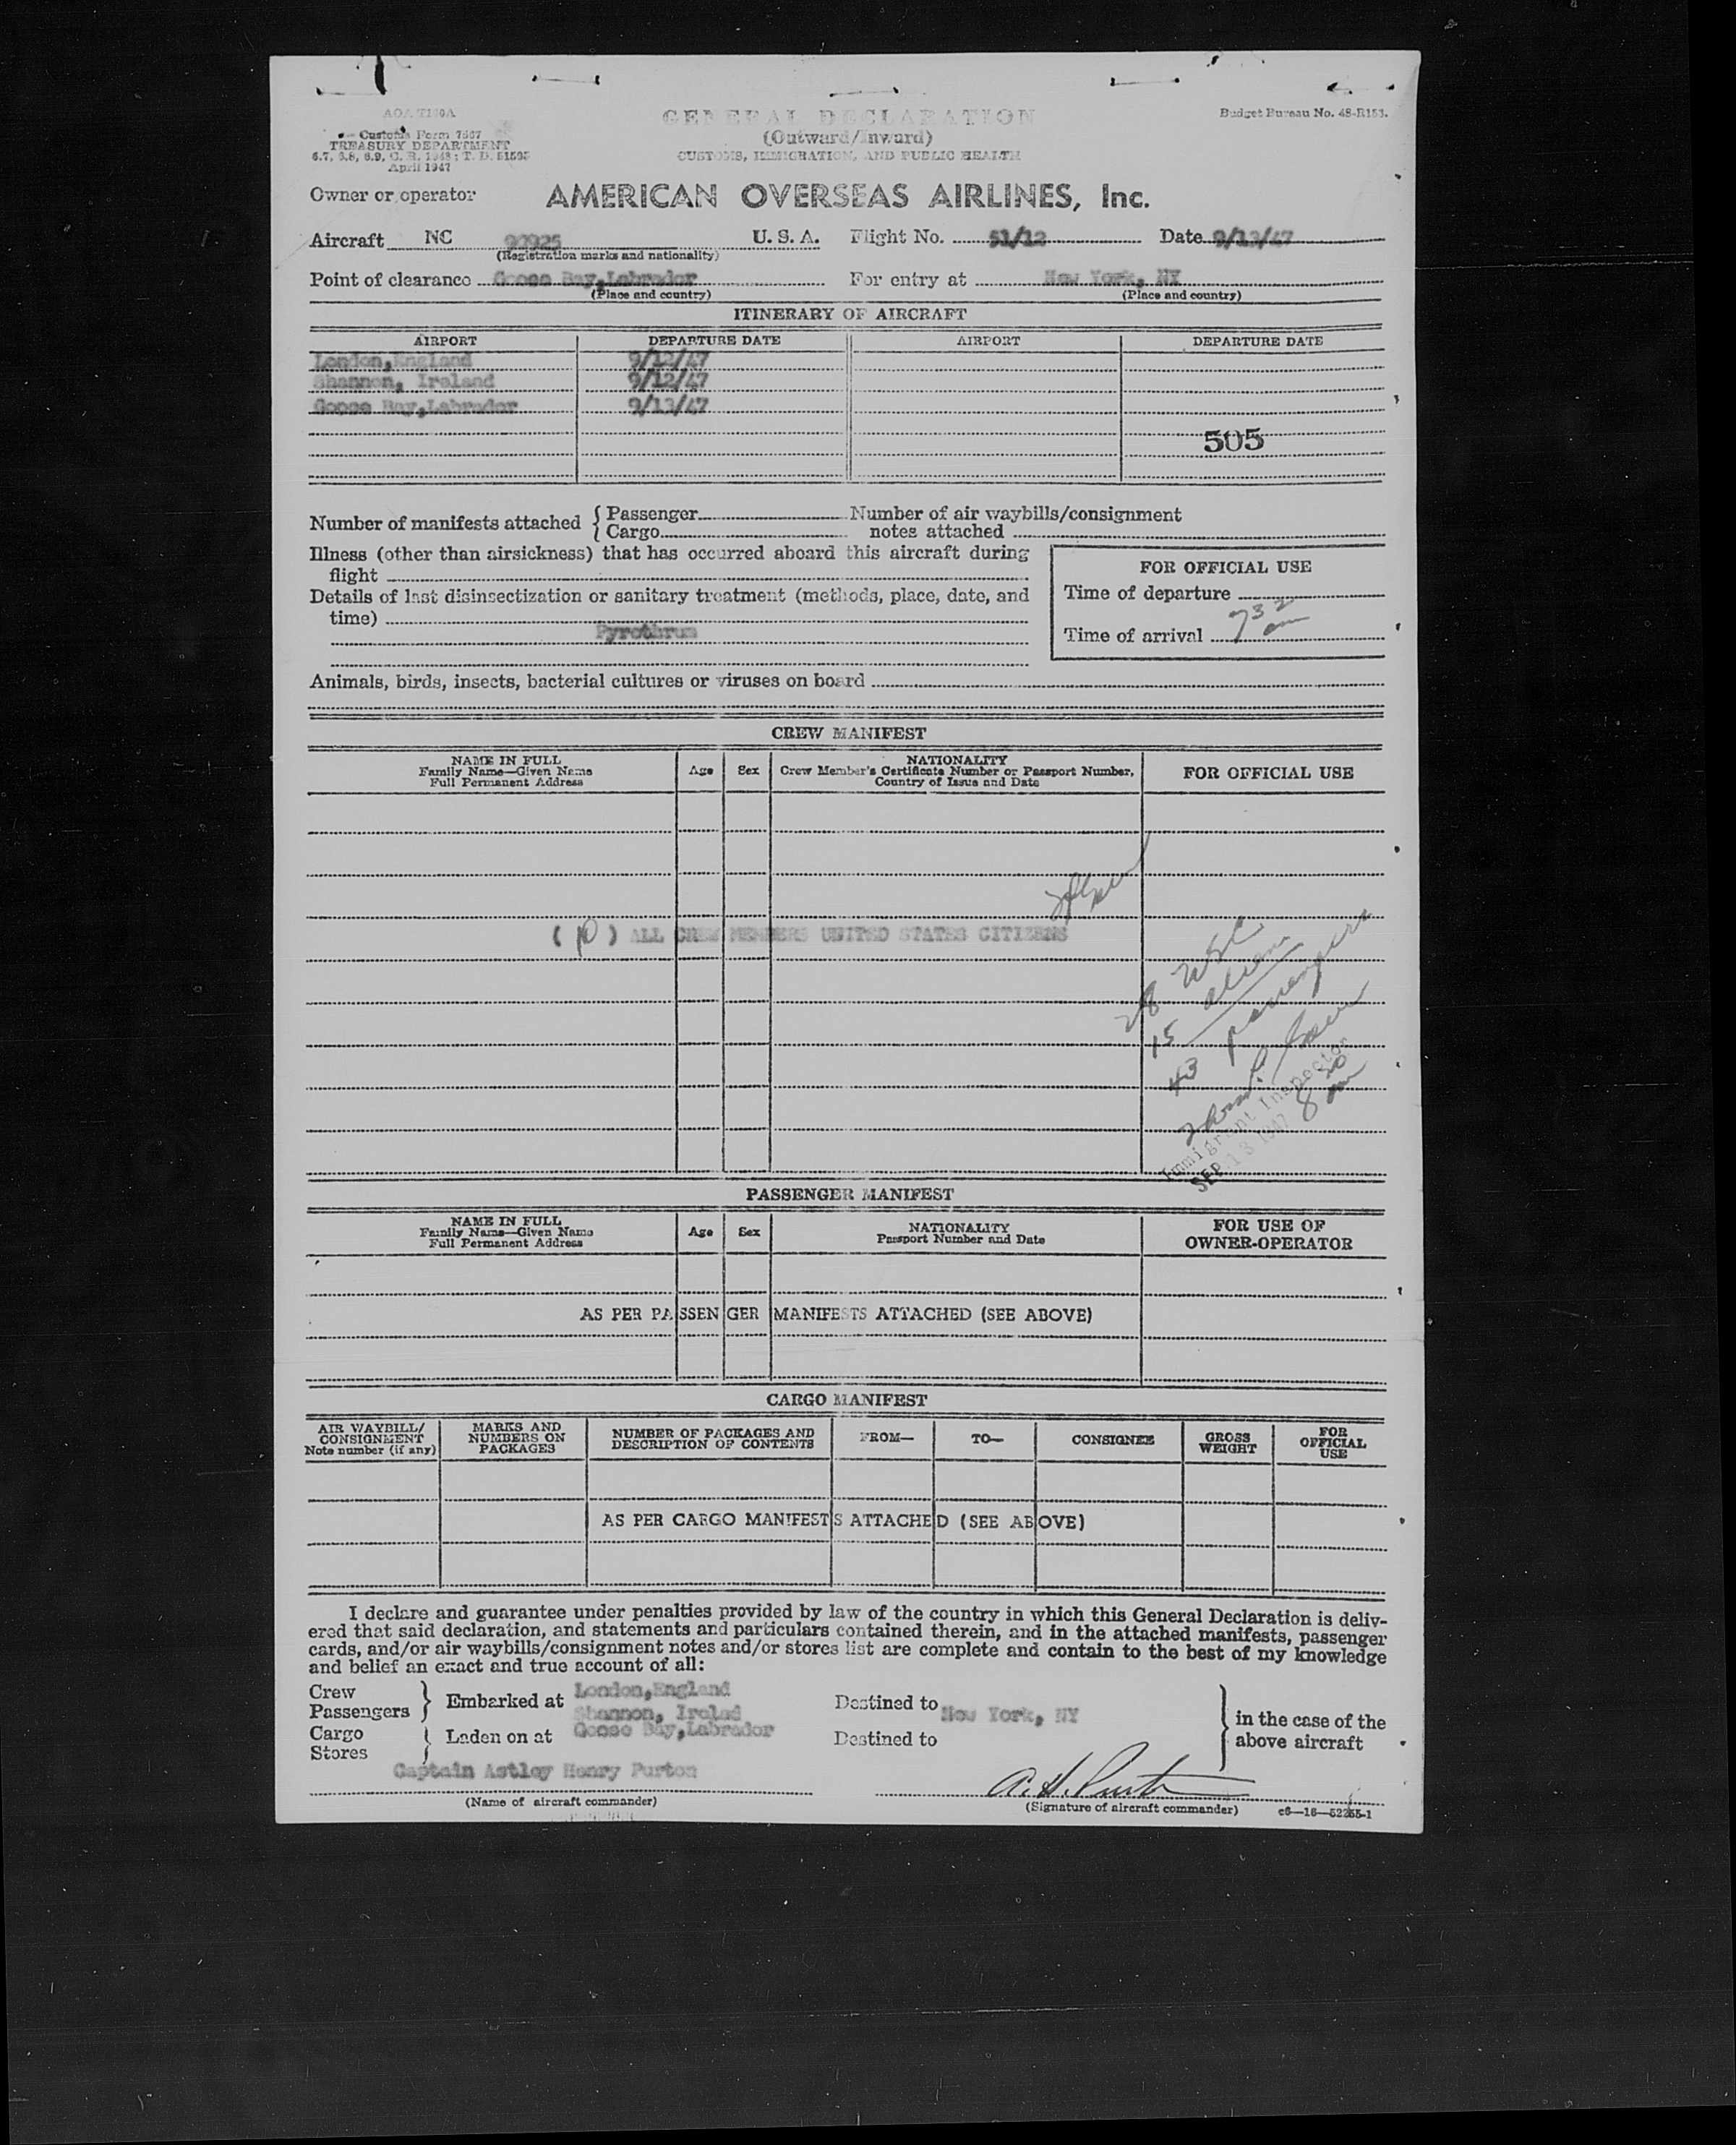 GENERAL DECLARATION
(Outward/Inward)
CUSTOMS, IMMIGRATION, AND PUBLIC HEALTH
Customs Form 7507
TREASURY DEPARTMENT
April 1947
Budget Bureau No. 48-R153.
Owner or operator AMERICAN OVERSEAS AIRLINES, Inc.
Aircraft NC 90925 U. S. A. Flight No. 51/12 Date 9/13/47
(Registration marks and nationality)
Point of clearance Goose Bay,Labrador For entry at New York, NY
(Place and country) (Place and country)
ITINERARY OF AIRCRAFT
AIRPORT DEPARTURE DATE AIRPORT DEPARTURE DATE
London,England 9/12/47
Shannon, Ireland 9/12/47
Goose Bay,Labrador 9/13/47
505
Number of manifests attached { Passenger Number of air waybills/consignment
{ Cargo notes attached
Illness (other than airsickness) that has occurred aboard this aircraft during
flight
Details of last disinsectization or sanitary treatment (methods, place, date, and
time)
Pyrethrum
FOR OFFICIAL USE
Time of departure
Time of arrival 7 32 am
Animals, birds, insects, bacterial cultures or viruses on board
CREW MANIFEST
NAME IN FULL
Family Name—Given Name
Full Permanent Address
Age
Sex
NATIONALITY
Crew Member's Certificate Number or Passport Number,
Country of Issue and Date
FOR OFFICIAL USE
( 10 ) ALL CREW MEMBERS UNITED STATES CITIZENS
28 USC
15 aliens
43 passengers
Immigrant Inspector
8 30 am
SEP 13 1947
PASSENGER MANIFEST
NAME IN FULL
Family Name—Given Name
Full Permanent Address
Age
Sex
NATIONALITY
Passport Number and Date
FOR USE OF
OWNER-OPERATOR
AS PER PASSENGER MANIFESTS ATTACHED (SEE ABOVE)
CARGO MANIFEST
AIR WAYBILL/
CONSIGNMENT
Note number (if any)
MARKS AND
NUMBERS ON
PACKAGES
NUMBER OF PACKAGES AND
DESCRIPTION OF CONTENTS
FROM—
TO—
CONSIGNEE
GROSS
WEIGHT
FOR
OFFICIAL
USE
AS PER CARGO MANIFESTS ATTACHED (SEE ABOVE)
I declare and guarantee under penalties provided by law of the country in which this General Declaration is deliv-
ered that said declaration, and statements and particulars contained therein, and in the attached manifests, passenger
cards, and/or air waybills/consignment notes and/or stores list are complete and contain to the best of my knowledge
and belief an exact and true account of all:
Crew
Passengers } Embarked at London,England
Shannon, Irelad Destined to New York, NY
Cargo
Stores } Laden on at Goose Bay,Labrador Destined to
} in the case of the
above aircraft
Captain Astley Henry Purton A. H. Purton
(Name of aircraft commander) (Signature of aircraft commander)